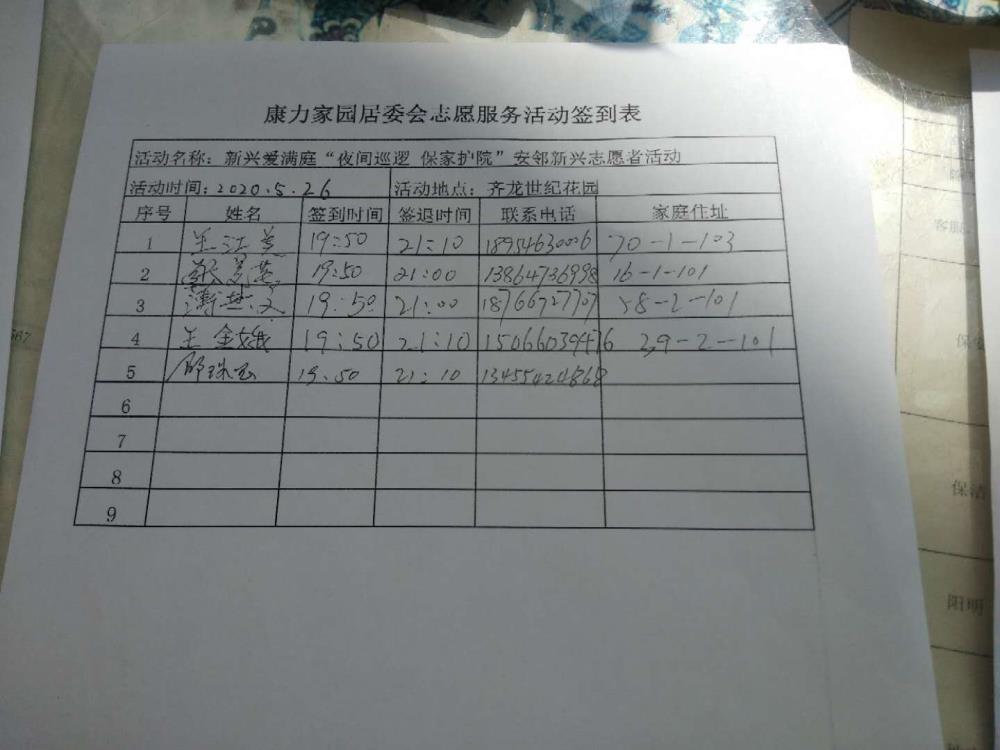 康力家园居委会志愿服务活动签到表
活动名称：新兴爱满庭“夜间巡逻 保家护院”安邻新兴志愿者活动
活动时间：2020.5.26 活动地点：齐龙世纪花园
序号 姓名 签到时间 签退时间 联系电话 家庭住址
1 王江兰 19:50 21:10 18954630006 70-1-103
2 19:50 21:00 13864736998 16-1-101
3 19:50 21:00 18766727707 58-2-101
4 王金娥 19:50 21:10 15066039476 29-2-101
5 邵珠玉 19:50 21:10 13455424868
6
7
8
9
保洁
阳明